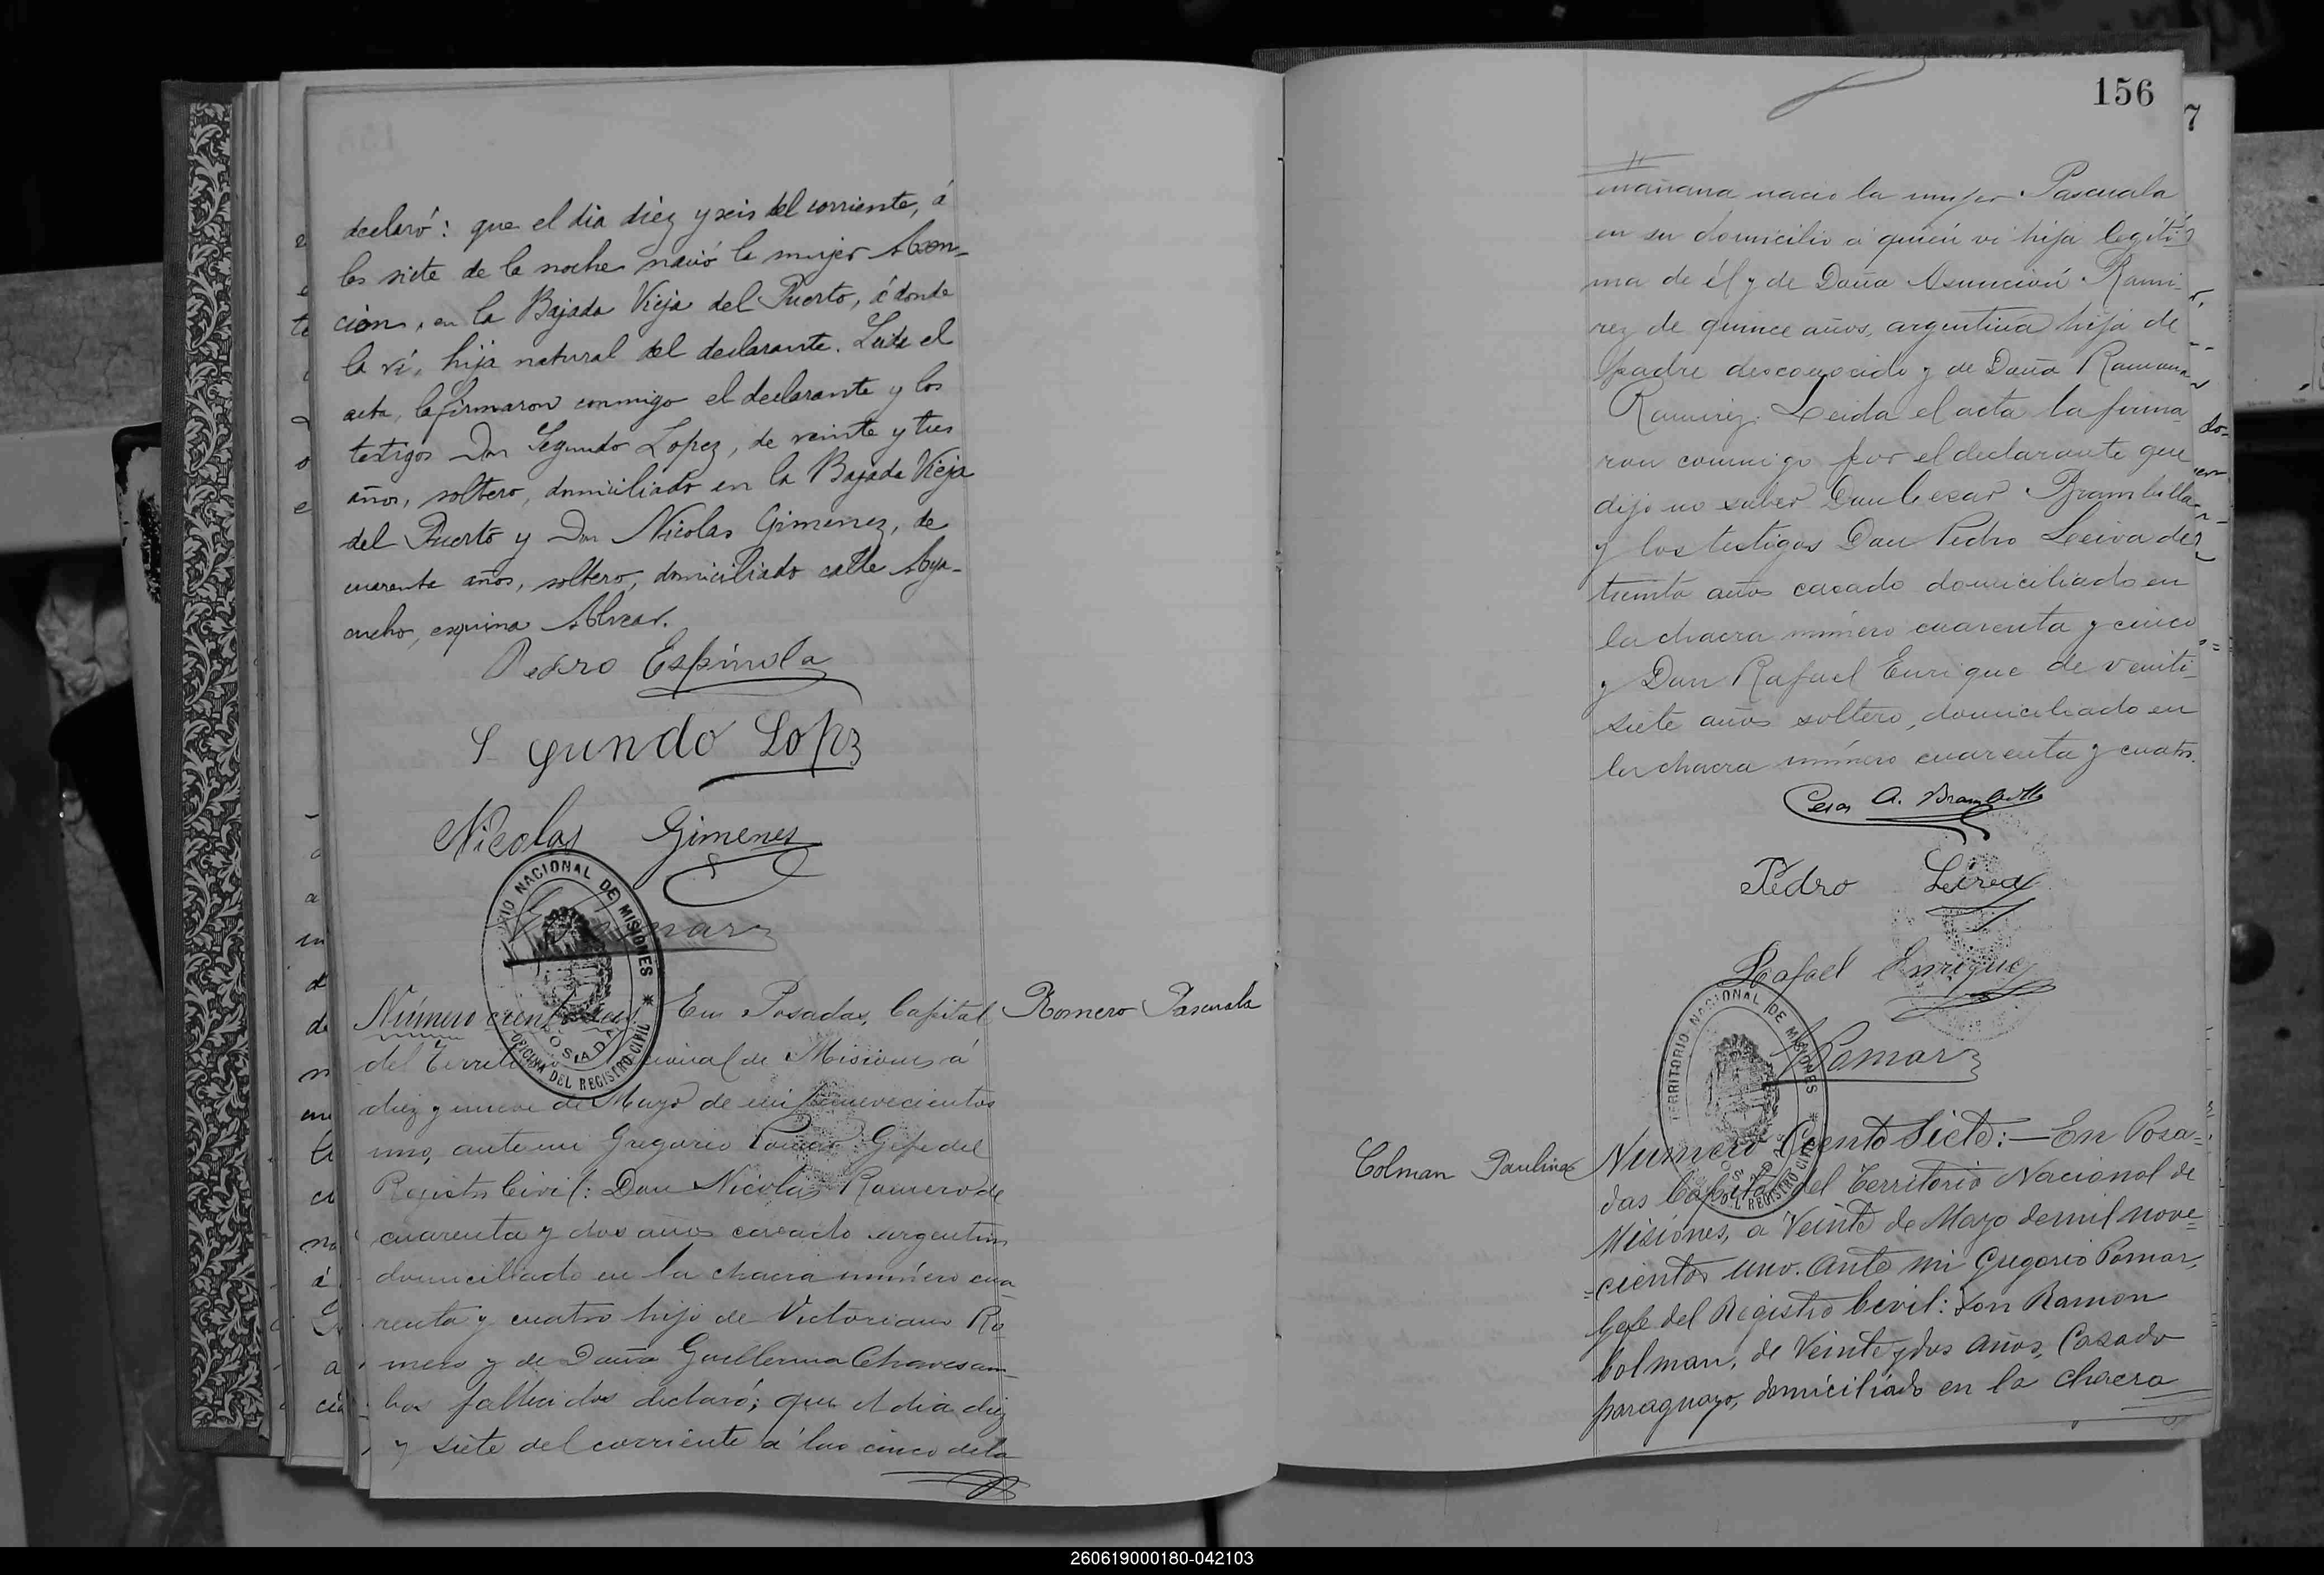 declaró: que el dia diez y seis del corriente, á
las siete de la noche nació la mujer Asun-
ción, en la Bajada Vieja del Puerto, á donde
la ví, hija natural del declarante. Leida el
acta, la firmaron conmigo el declarante y los
testigos Don Segundo Lopez, de veinte y tres
años, soltero, domiciliado en la Bajada Vieja
del Puerto y Don Nicolas Gimenez, de
cuarenta años, soltero, domiciliado calle Aya-
cucho, esquina Alvear.
Pedro Espínola
Segundo Lopz
Nicolas Gimenes
TERRITORIO NACIONAL DE MISIONES * OFICINA DEL REGISTRO CIVIL
POSADAS
Pomar
Número ciento seis En Posadas, Capital
Romero Pascuala
del Territorio Nacional de Misiones á
diez y nueve de Mayo de mil novecientos
uno, ante mi Gregorio Pomar Gefe del
Registro Civil: Don Nicolas Romero de
cuarenta y dos años casado argentino
domiciliado en la chacra número cua
renta y cuatro hijo de Victoriano Ro
mero y de Doña Guillerma Chaves am-
bos fallecidos declaró; que el dia diez
y siete del corriente a las cinco de la
156
7
mañana nacio la mujer Pascuala
en su domicilio a quien vi hija legiti
ma de él y de Doña Asunción Rami-
rez de quince años, argentina hija de
padre desconocido y de Doña Ramona
Ramirez. Leida el acta la firma-
ron conmigo por el declarante que
dijo no saber Don Cesar Brambilla
y los testigos Don Pedro Leiva de
treinta años casado domiciliado en
la chacra número cuarenta y cinco
y Don Rafael Enrique de veinti-
siete años soltero, domiciliado en
la chacra número cuarenta y cuatro.
Cesar A. Brambilla
Pedro Leiva
Rafael Enrique
Pomar
TERRITORIO NACIONAL DE MISIONES * OFICINA DEL REGISTRO CIVIL
POSADAS
Colman Paulina
Numero Ciento Siete:—En Posa=
das Capital del Territorio Nacional de
Misiónes, a Veinte de Mayo de mil nove=
=cientos uno. Ante mi Gregorio Pomar,
Gefe del Registro Civil: Don Ramon
Colman, de Veinte y dos años, Casado
paraguayo, domiciliado en la chacra
260619000180-042103